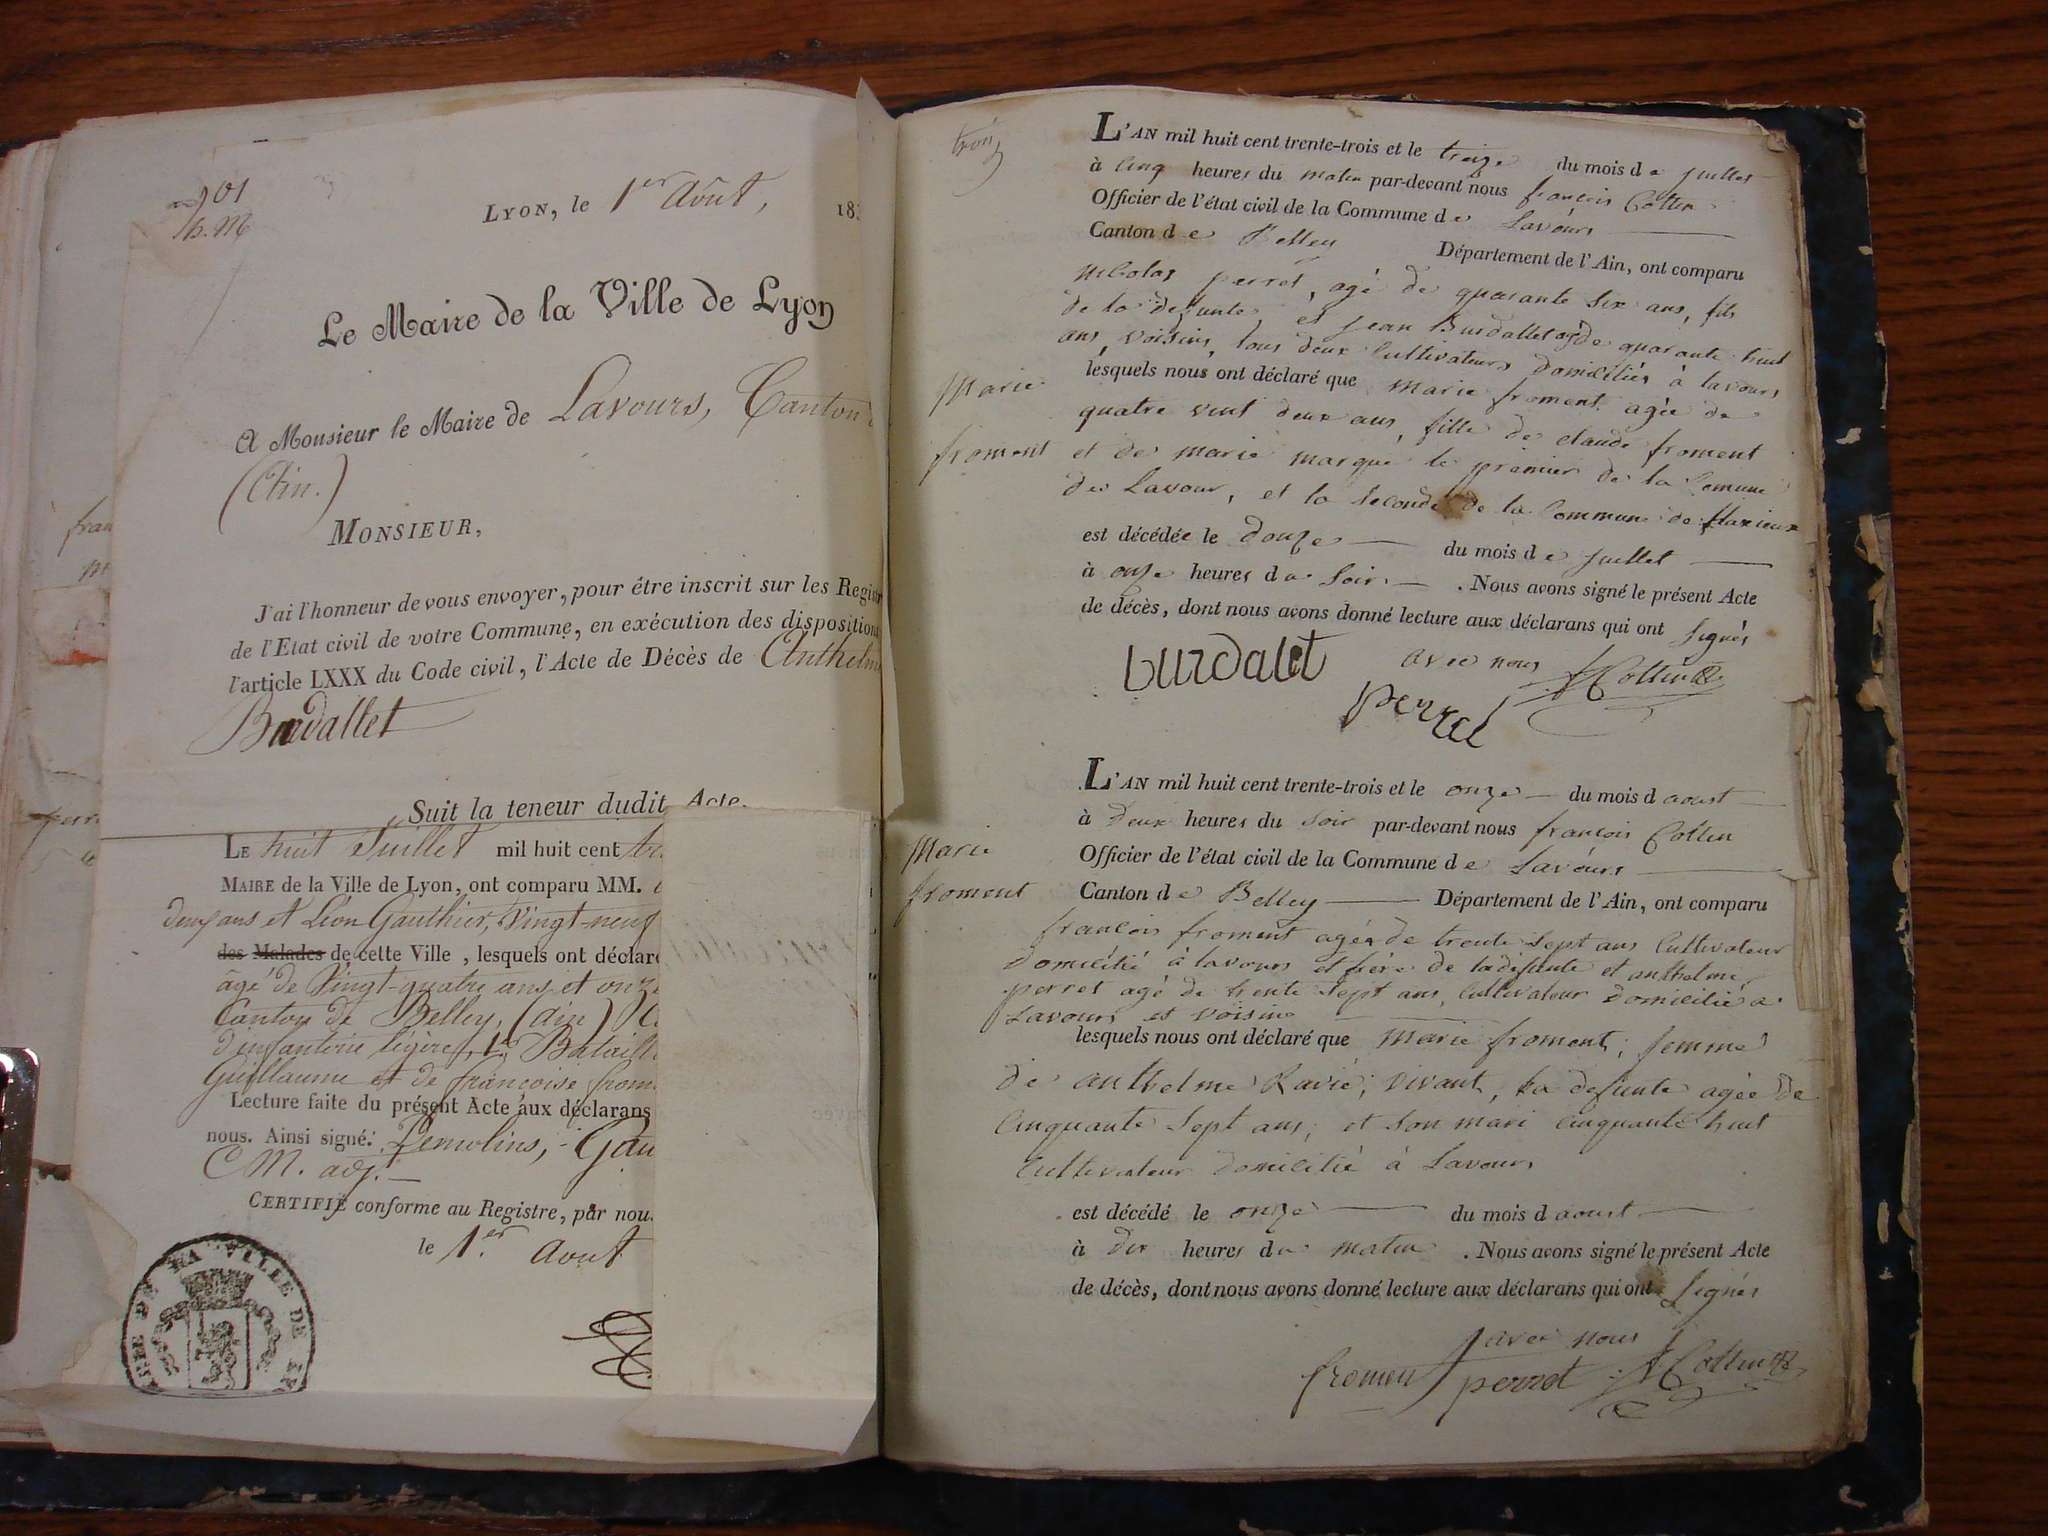 901
LYON, le 1er Août, 183
Le Maire de la Ville de Lyon
A Monsieur le Maire de Lavours, Canton d
(Ain.)
MONSIEUR,
J'ai l'honneur de vous envoyer, pour être inscrit sur les Regist
de l'Etat civil de votre Commune, en exécution des disposition
l'article LXXX du Code civil, l'Acte de Décès de Anthelm
Burdallet
Suit la teneur dudit Acte.
LE huit Juillet mil huit cent tr
MAIRE de la Ville de Lyon, ont comparu MM.
deux ans et Léon Gauthier, Vingt-neuf
des Malades de cette Ville, lesquels ont déclaré
âgé de Vingt-quatre ans et onze
Canton de Belley, (ain)
d'infanterie légère, 1er Bataill
Guillaume et de françoise from
Lecture faite du présent Acte aux déclarans
nous. Ainsi signé: Demolins, Gau
C M. adj.
CERTIFIÉ conforme au Registre, par nou
le 1er Aout
MAIRIE DE LA VILLE DE
L'AN mil huit cent trente-trois et le treize du mois de juillet
à cinq heures du matin par-devant nous françois Cottin
Officier de l'état civil de la Commune de Lavours
Canton de Belley Département de l'Ain, ont comparu
nicolas perret, agé de quarante six ans, fils
de la defunte, et jean Burdallet agé de quarante huit
ans, voisins, tous deux Cultivateurs domiciliés à lavours
Marie
froment
lesquels nous ont déclaré que marie froment agée de
quatre vint deux ans, fille de claude froment
et de marie marque le premier de la Comune
de Lavour, et la seconde de la Commune de flaxieux
est décédée le douze du mois de juillet
à onze heures du soir. Nous avons signé le présent Acte
de décès, dont nous avons donné lecture aux déclarans qui ont signés
avec nous
burdalet
Cottin
perret
L'AN mil huit cent trente-trois et le onze du mois d aoust
à deux heures du soir par-devant nous françois Cottin
Officier de l'état civil de la Commune de Lavours
Marie
froment
Canton de Belley Département de l'Ain, ont comparu
françois froment agée de trente sept ans Cultivateur
domicilié à lavours et frère de la defunte et anthelme
perret agé de trente sept ans, Cultivateur domicilié a
Lavours et voisin
lesquels nous ont déclaré que Marie froment, femme
de anthelme Ravié, vivant, la defunte agée de
Cinquante sept ans, et son mari cinquante huit
Cultivateur domicilié à Lavours
est décédé le onze du mois d aoust
à dix heures du matin. Nous avons signé le présent Acte
de décès, dont nous avons donné lecture aux déclarans qui ont signés
avec nous
froment perret Cottin